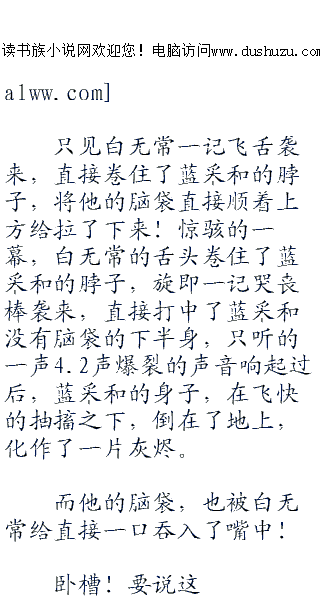 读书族小说网欢迎您！电脑访问www.dushuzu.com
alww.com]
只见白无常一记飞舌袭
来，直接卷住了蓝采和的脖
子，将他的脑袋直接顺着上
方给拉了下来！惊骇的一
幕，白无常的舌头卷住了蓝
采和的脖子，旋即一记哭丧
棒袭来，直接打中了蓝采和
没有脑袋的下半身，只听的
一声4.2声爆裂的声音响起过
后，蓝采和的身子，在飞快
的抽搐之下，倒在了地上，
化作了一片灰烬。
而他的脑袋，也被白无
常给直接一口吞入了嘴中！
卧槽！要说这